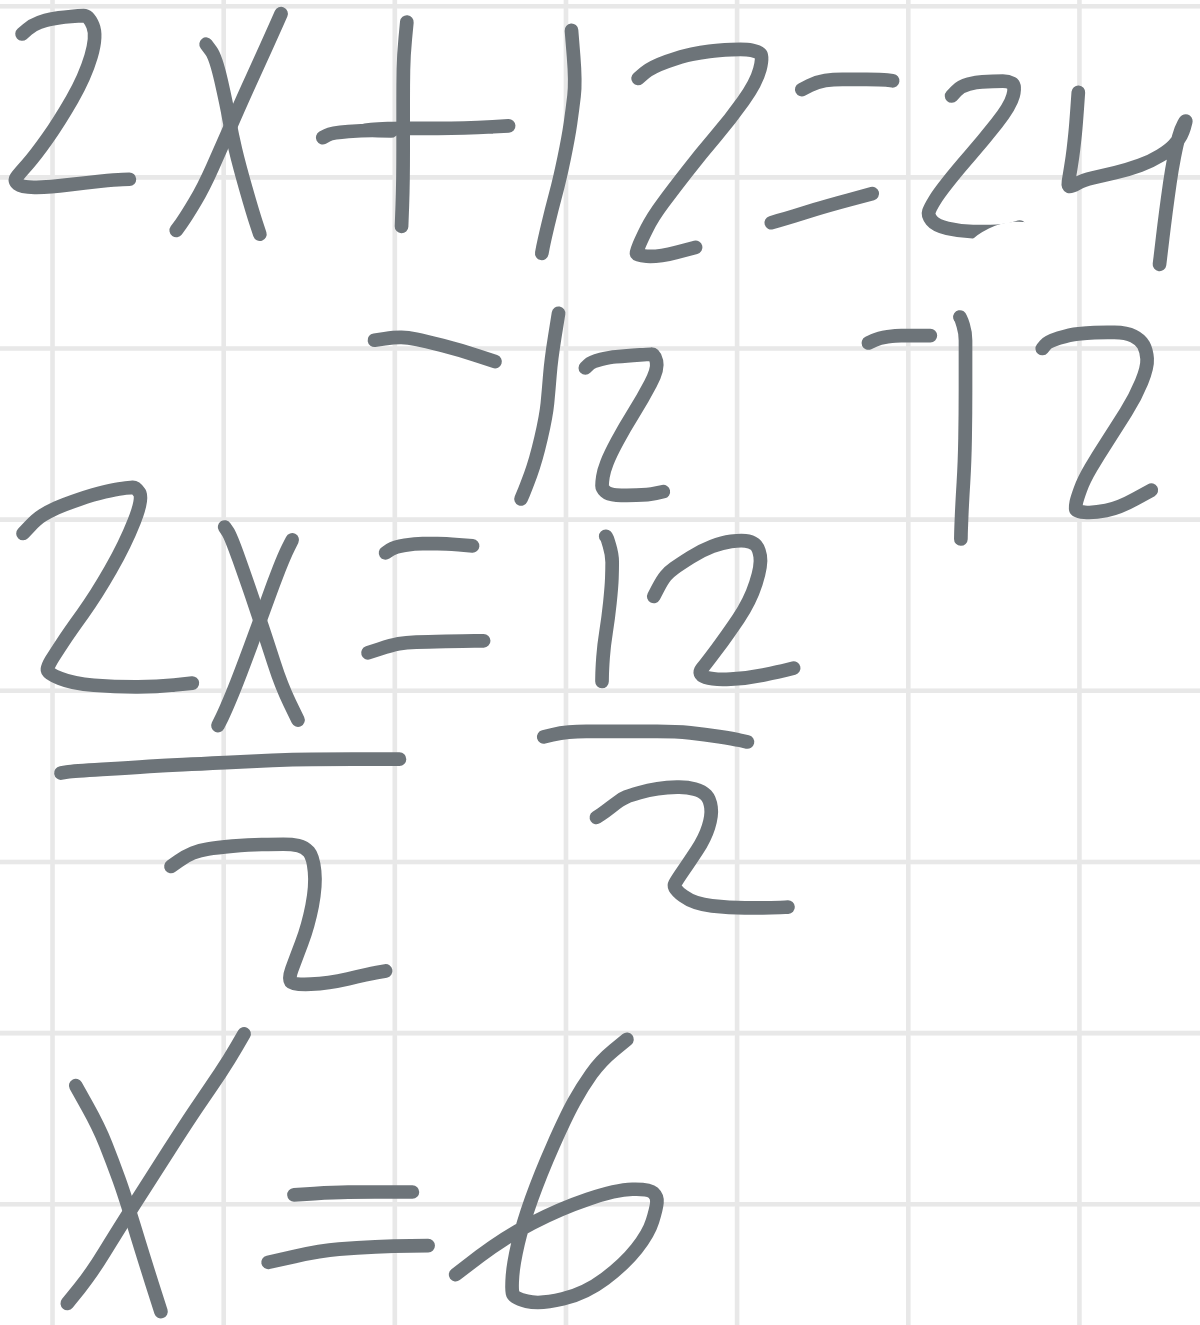 2x+12=24
-12 -12
2x = 12
2 2
x = 6